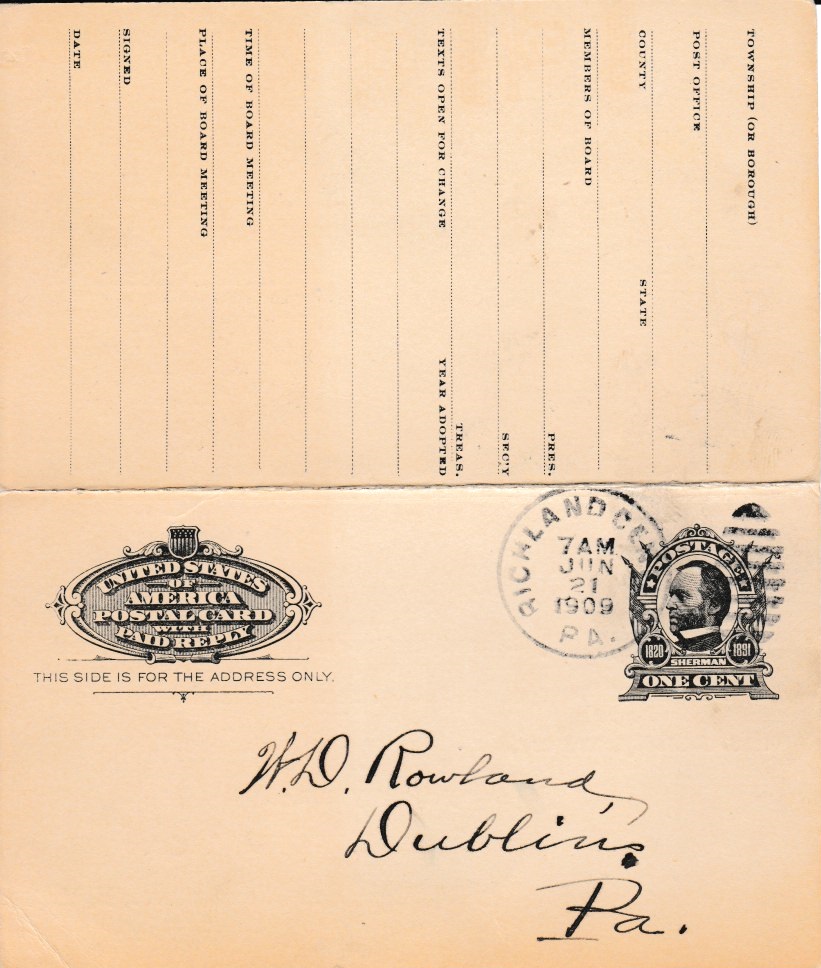 TOWNSHIP (OR BOROUGH)
POST OFFICE
COUNTY STATE
MEMBERS OF BOARD
PRES.
SEC'Y
TREAS.
TEXTS OPEN FOR CHANGE YEAR ADOPTED
TIME OF BOARD MEETING
PLACE OF BOARD MEETING
SIGNED
DATE
UNITED STATES
OF
AMERICA
POSTAL CARD
WITH
PAID REPLY
THIS SIDE IS FOR THE ADDRESS ONLY.
RICHLAND
7AM
JUN
21
1909
PA.
POSTAGE
1820 1891
SHERMAN
ONE CENT
W. D. Rowland,
Dublin,
Pa.